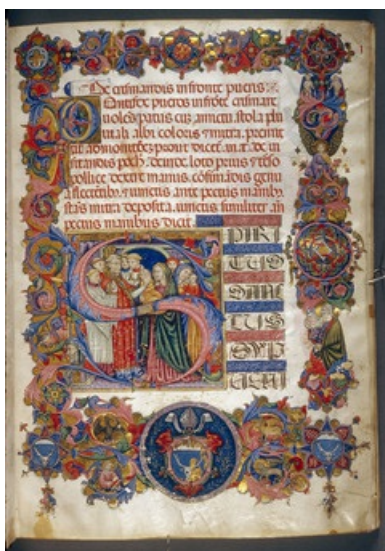 De crismandis in fronte pueris
Pontifex pueros in frōte crismare
uolēs paratus cū amictu. stola plu
uiali albi coloris & mitra. premit
prout dicet̄ in. t. de in
deinde loto prius & terso
pollice dextre manus. cōfirmādis genu
a flectētibꝫ. & iunctis ante pectus manibꝫ
stās mitra deposita. iunctis similiter an
pectus manibus dicit
SPIRI
TUS
SANC
TUS
SUP